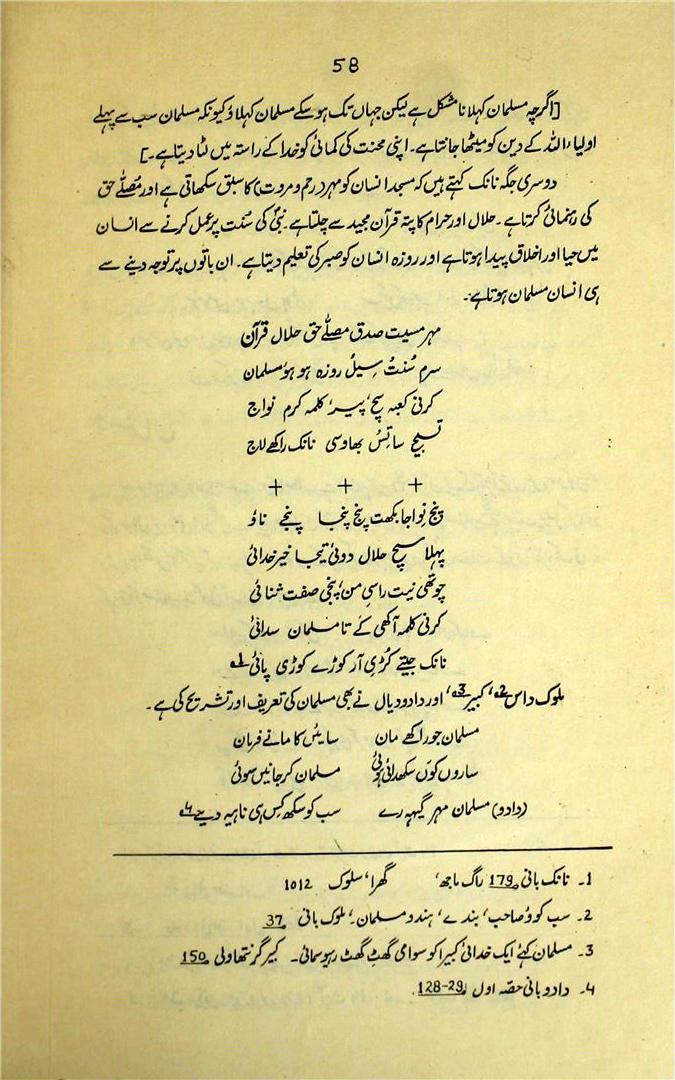 58
[اگرچہ مسلمان کہلانا مشکل ہے لیکن جہاں تک ہو سکے مسلمان کہلاؤ کیونکہ مسلمان سب سے پہلے
اولیاء اللہ کے دین کو میٹھا جانتا ہے۔ اپنی محنت کی کمائی کو خدا کے راستہ میں لٹا دیتا ہے۔]
دوسری جگہ نانک کہتے ہیں کہ مسجد انسان کو مہر (رحم و مروت) کا سبق سکھاتی ہے اور مُصلّے حق
کی رہنمائی کرتا ہے۔ حلال اور حرام کا پتہ قرآن مجید سے چلتا ہے۔ نبیؐ کی سُنت پر عمل کرنے سے انسان
میں حیا اور اخلاق پیدا ہوتا ہے اور روزہ انسان کو صبر کی تعلیم دیتا ہے۔ ان باتوں پر توجہ دینے سے
ہی انسان مسلمان ہوتا ہے۔
مہر مسیت صدق مصلّے حق حلال قرآن
سرم سُنت سِیلُ روزہ ہو ہو مسلمان
کرنی کعبہ سچ، پیر، کلمہ کرم نواج
تسبیح ساتِسُ بھاوسی نانک راکھے لاج
+ + +
پنج نِواجا بکھت پنج پنجا پنجے ناؤ
پہلا سچ حلال دوئی تیجا خیر خدائی
چوتھی نیت راسی من، پنجی صفت ثنائی
کرنی کلمہ آکھی کے تا مسلمان سدائی
نانک جیتے کُڑی آر کوڑے کوڑی پائی؂1
ملوک داس؂2، کبیر؂3، اور دادو دیال نے بھی مسلمان کی تعریف اور تشریح کی ہے۔
مسلمان جو راکھے مان سایئں کا مانے فرمان
ساروں کوں سکھدائی ہوئی مسلمان کر جانیں سوئی
(دادو) مسلمان مہر گیہہ رے سب کو سکھ کِس ہی ناہیہ دیے؂4
1۔ نانک بانی 179، راگ ماجھ، گھرا، سلوک 1012
2۔ سب کوؤ صاحب، بندے، ہندو مسلمان۔، ملوک بانی 37
3۔ مسلمان کہئے ایک خدائی، کبیرا کو سوامی گھٹِ گھٹ رہیو سمائی۔ کبیر گرنتھاولی 150
4۔ دادو بانی حصہ اول 128-29